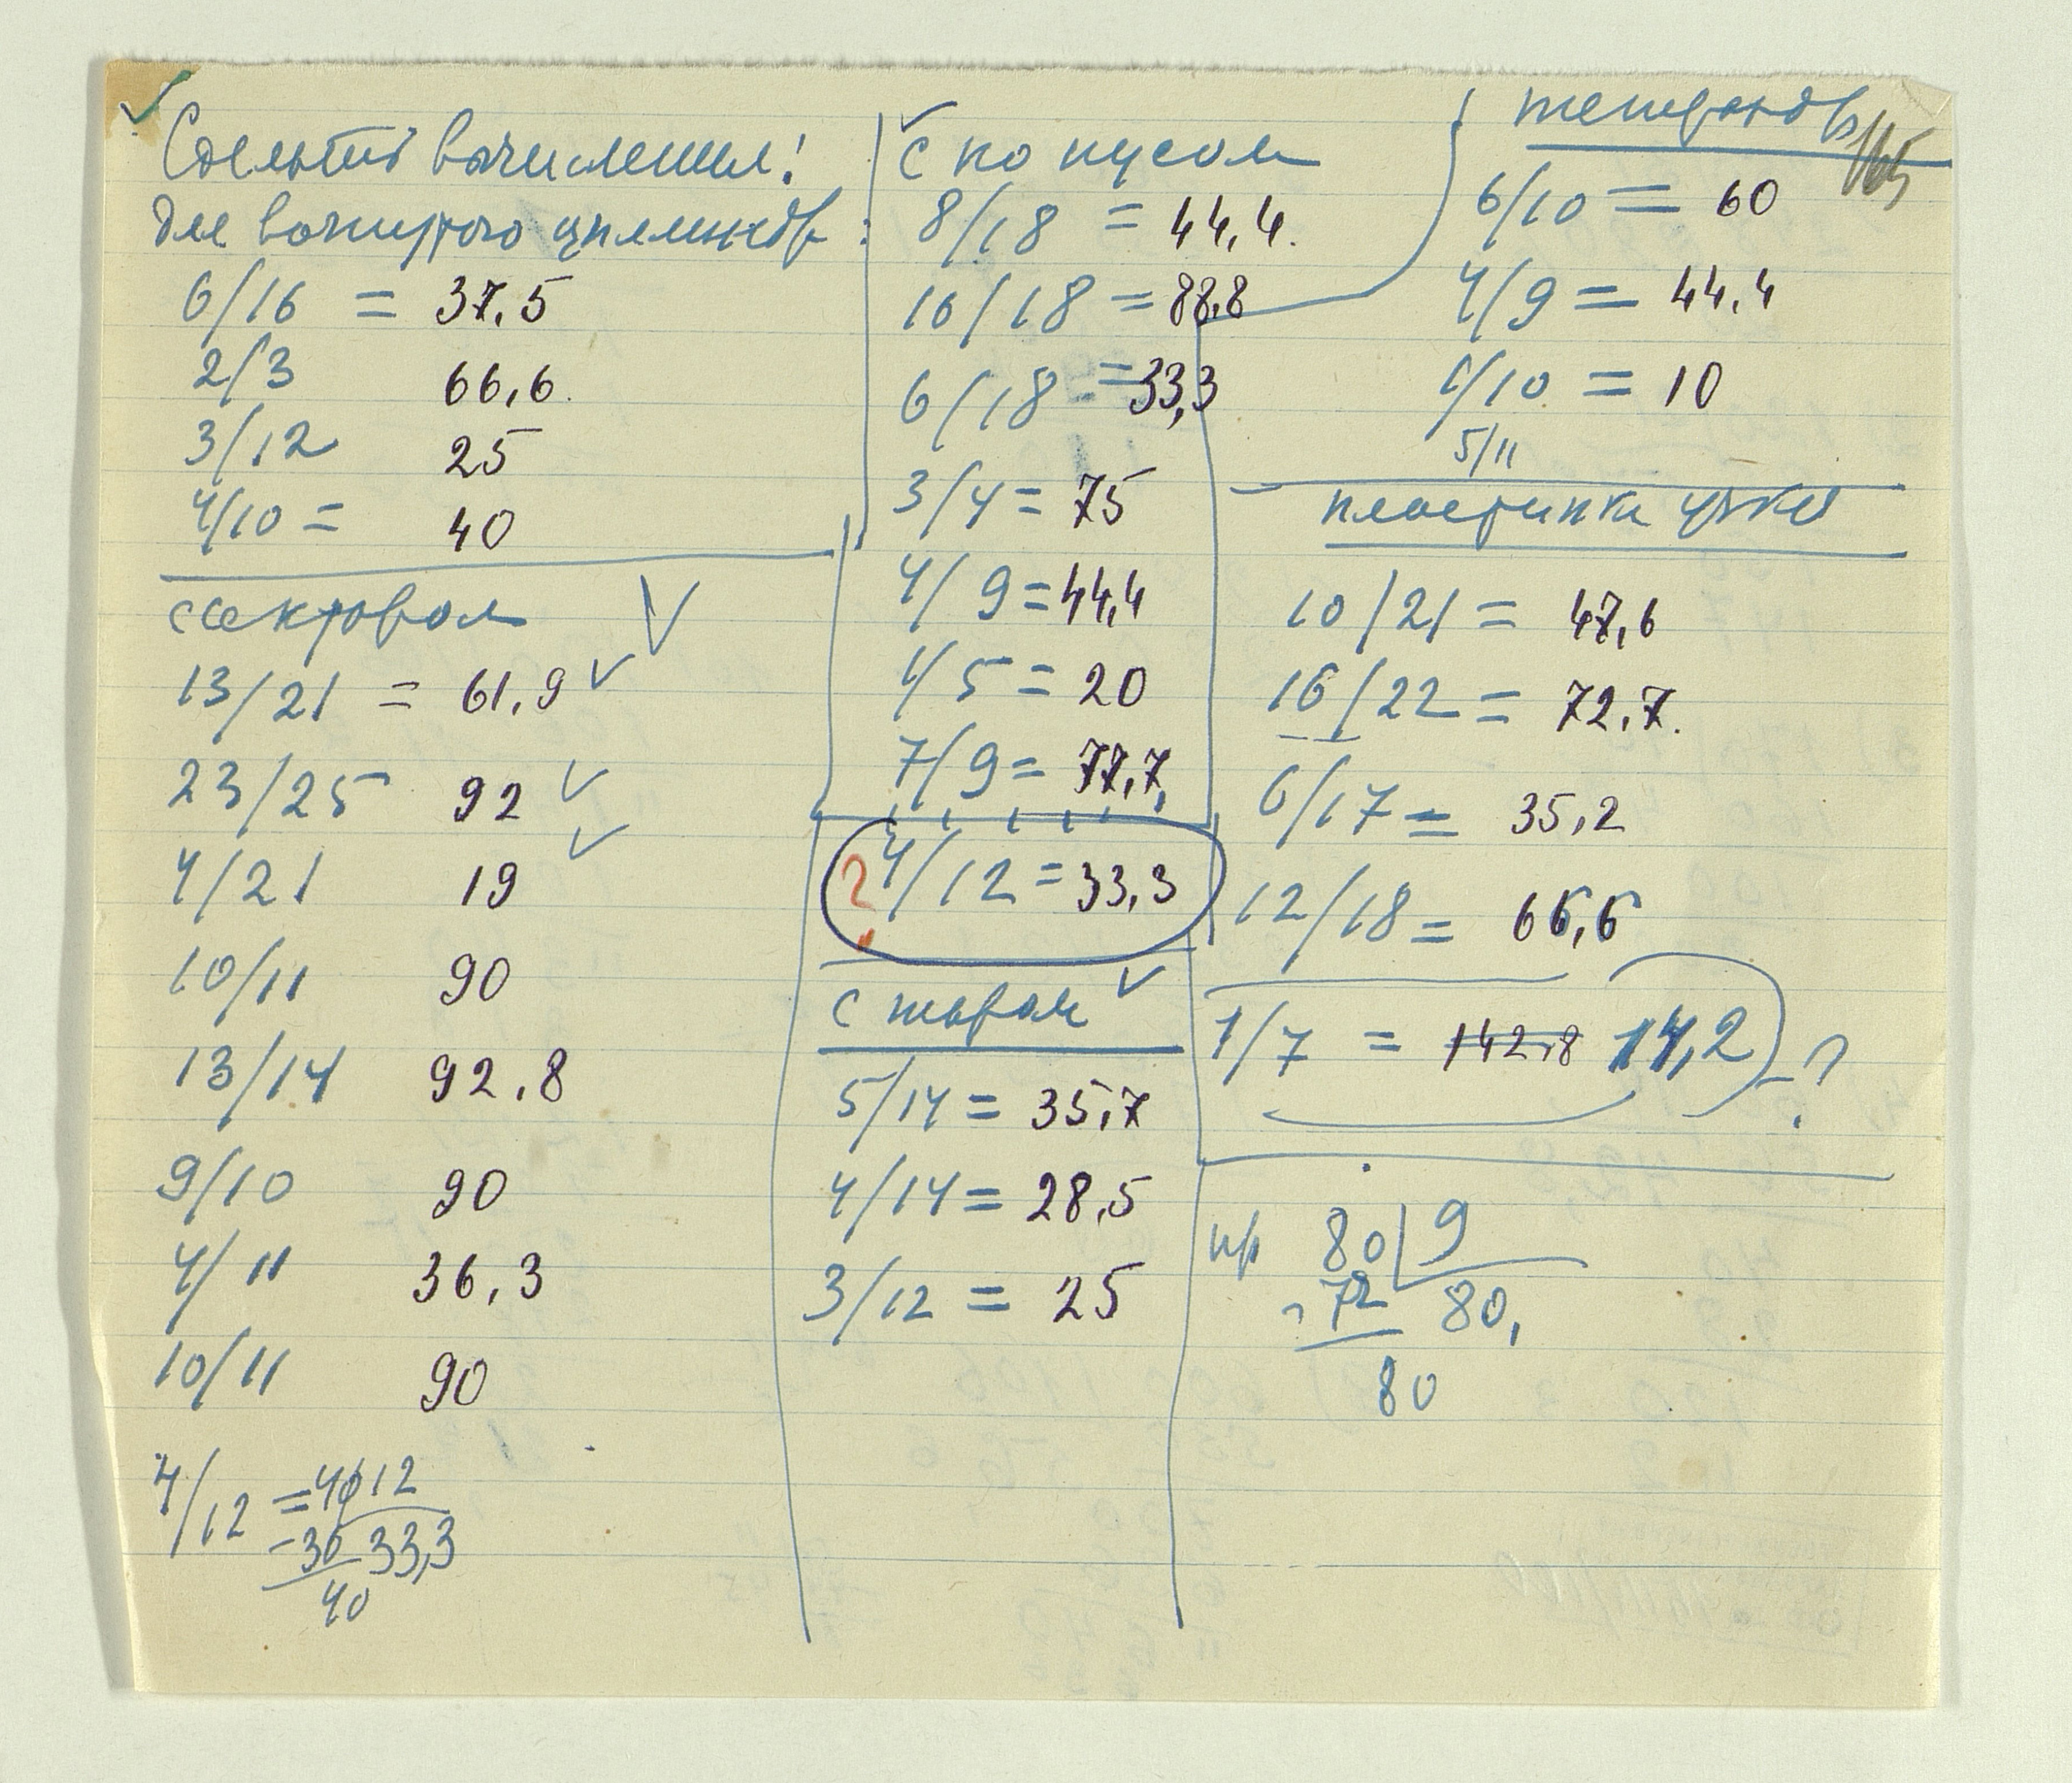 Сделать вычисления!
для вогнутого цилиндра:
6/16 = 37,5
2/3 66,6.
3/12 25
4/10 = 40
13/21 = 61,9
23/25 92
4/21 19
10/11 90
13/14 92,8
9/10 90
4/11 36,3
10/11 90
4/12 = 40 12
-36 33,3
40
с конусом
8/18 = 44,4.
16/18 = 88,8
6/18 = 33,3
3/4 = 75
4/9 = 44,4
1/5 = 20
7/9 = 77,7
? 4/12 = 33,3
с шаром
5/14 = 35,7
4/14 = 28,5
3/12 = 25
165
6/10 = 60
4/9 = 44,4
1/10 = 10
5/11
пластинка узкая
10/21 = 47,6
16/22 = 72,7.
6/17 = 35,2
12/18 = 66,6
1/7 = 142,8 14,2 - ?
80 9
-72 80,
80